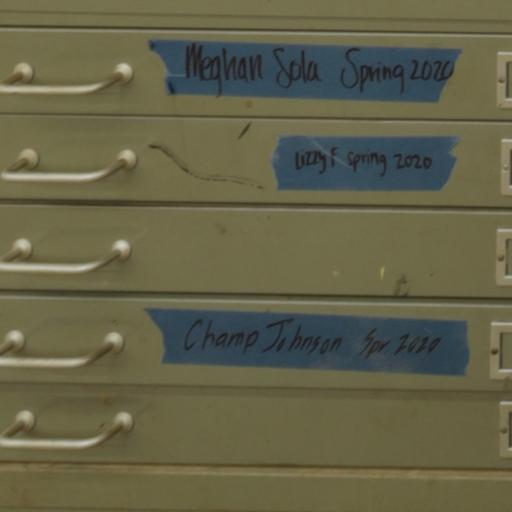 Meghan Sola Spring 2020
Lizzy F spring 2020
Champ Johnson Spr 2020